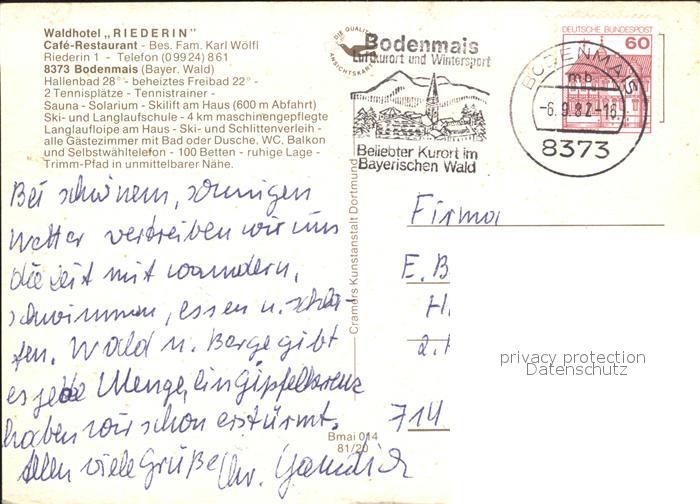 Waldhotel „RIEDERIN"
Café-Restaurant - Bes. Fam. Karl Wölfl
Riederin 1 - Telefon (09924) 861
8373 Bodenmais (Bayer. Wald)
Hallenbad 28° - beheiztes Freibad 22° -
2 Tennisplätze - Tennistrainer -
Sauna - Solarium - Skilift am Haus (600 m Abfahrt)
Ski- und Langlaufschule - 4 km maschinengepflegte
Langlaufloipe am Haus - Ski- und Schlittenverleih -
alle Gästezimmer mit Bad oder Dusche, WC, Balkon
und Selbstwähltelefon - 100 Betten - ruhige Lage -
Trimm-Pfad in unmittelbarer Nähe.
Bei schönem, sonnigen
Wetter vertreiben wir uns
die Zeit mit wandern,
schwimmen, essen u. schla-
fen. Wald u. Berge gibt
es jede Menge, ein Gipfelkreuz
haben wir schon erstürmt.
Allen viele Grüße
DIE QUALITÄTS
ANSICHTSKARTE
Bodenmais
Luftkurort und Wintersport
Beliebter Kurort im
Bayerischen Wald
DEUTSCHE BUNDESPOST
60
BODENMAIS
mb
-6.9.82-16
8373
Cramers Kunstanstalt Dortmund
Bmai 014
81/20
Firma
E. B
H
2.
714
privacy protection
Datenschutz